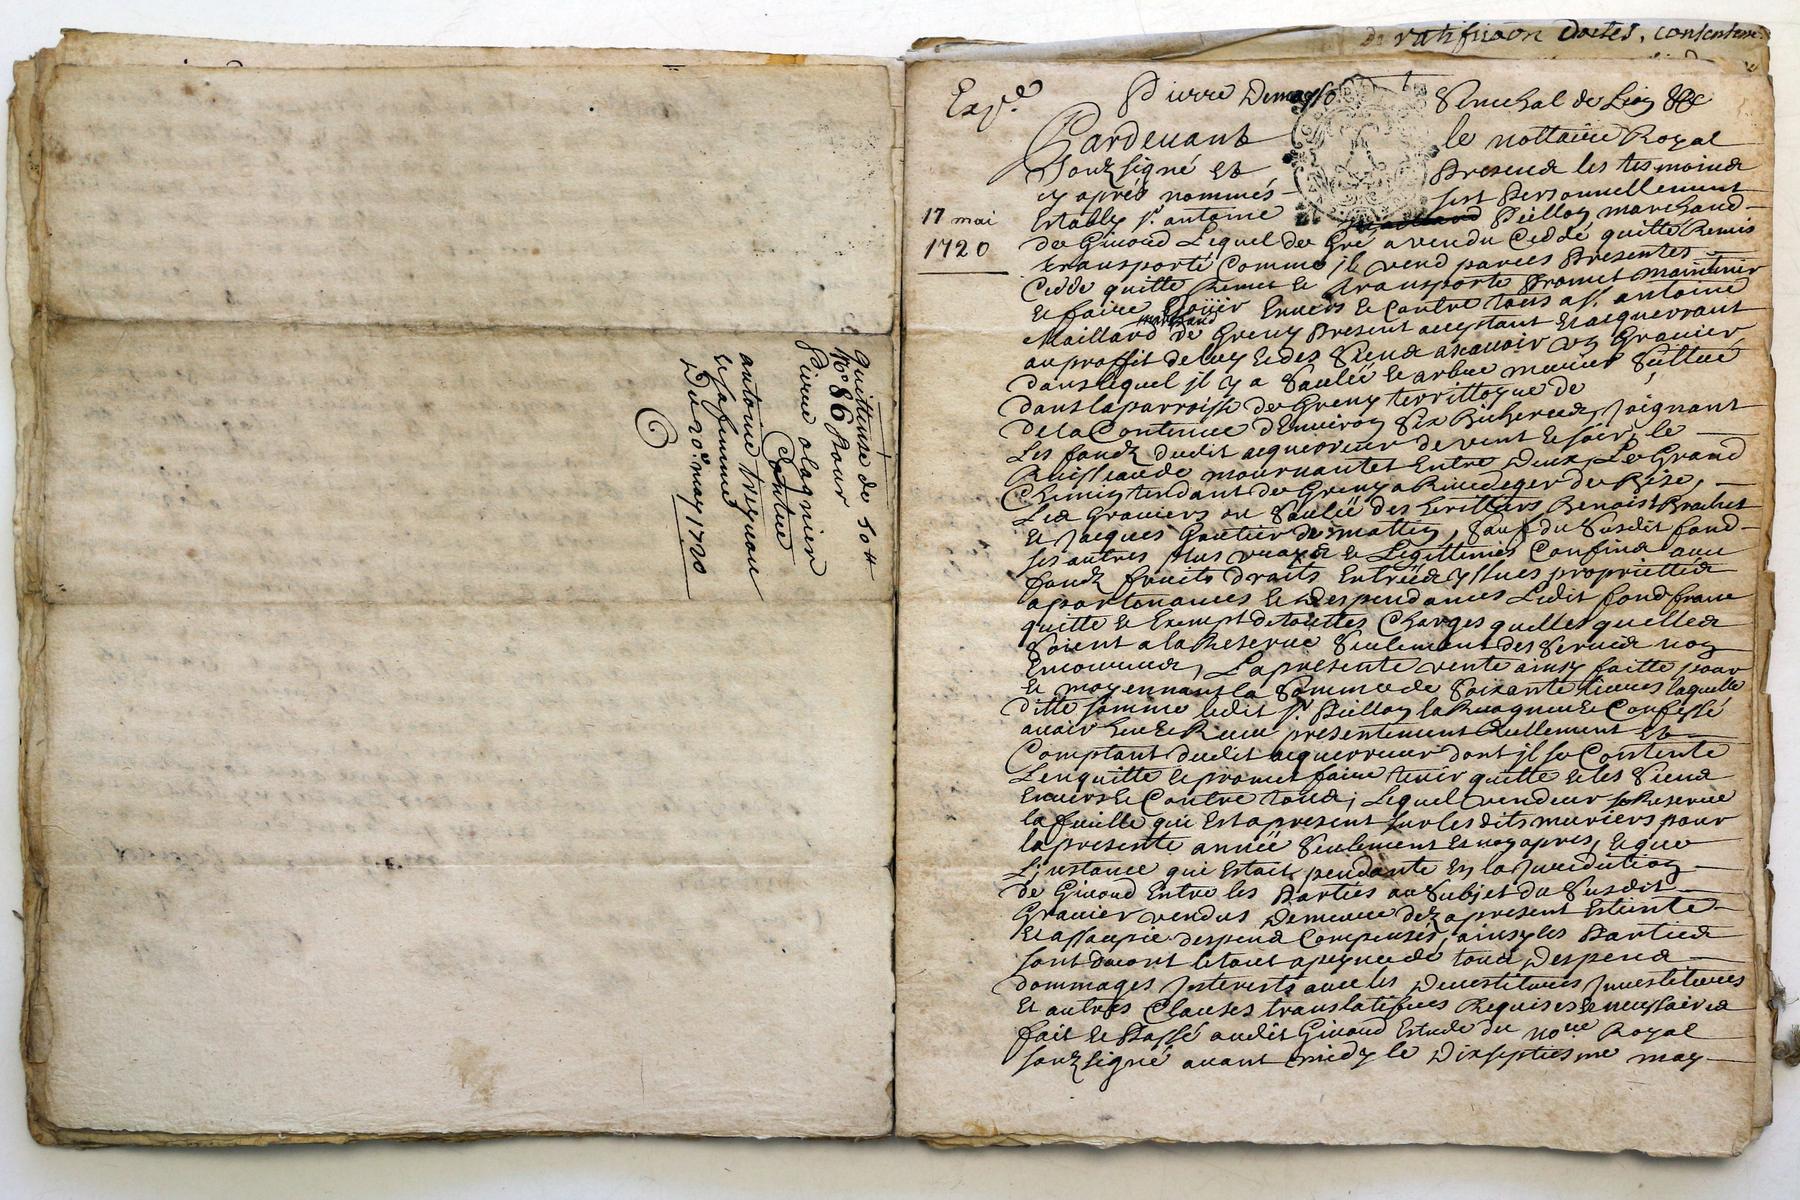 de ratifficaon dactes, consentem.
Quittance de 50#
N° 86 pour
Pierre olagnier
Contre
antoine treynau
et sa femme
Du 20e. may 1720
Exp.e
17 mai
1720
Pierre Demasso Senechal de Lion &c
Pardevant le nottaire Royal
Souzsigné et Presens les tesmoins
cy aprés nommés sest Personnellement
Estably sr. antoine Pielloy marchand
de Givord Lequel de Gré a vendu Ceddé quitté Remis
transporté Comme jl vend par ces Presentes
Cedde quitte Remet et transporte Promet maintenir
et faire Jouir Envers et Contre tous a sr. antoine
marchand
Maillard de Greny Present acceptant et acquerrant
au proffit de luy et des Siens ascavoir un Gravier
dans lequel jl y a Saulée et arbre meurier Scittué
dans la parroisse de Greny territtoyre de
de la Contenue d'Environ Six Bicherées, joignant
Les fondz dudit acquerreur de vent et soir, le
Ruisseau de mournantet Entre deux, Le Grand
Chemin tendant de Greny a Rivedegier de Bise,
Les Graviers ou Saulée des herittiers Benoist Brachet
et Jacques Gautier de mattin, Sauf du Susdit fond
ses autres plus vrays et Legittimes Confins avec
fondz fruits droits Entrées yssues proprietés
apartenances et Despendances Ledit fond franc
quitte et Exempt de touttes Charges quelles quelles
Soient a la Reserve Seulement des Servis non
Encourus, La presente vente ainsy faitte pour
et moyennant la Somme de Soixante livres laquelle
ditte somme ledit sr. Pielloy la Recogneu et Confessé
avoir heu et Receu presentement Reellement et
Comptant dudit acquerreur dont jl se Contente
Lenquitte et promet faire tenir quitte et les Siens
Envers et Contre tous; Lequel vendeur se Reserve
la feuille qui Est a present sur les dits meuriers pour
la presente année Seulement et non apres, et que
L'instance qui Estait pendante En la Jurediction
de Givord Entre les Parties au Subjet du Susdit
Gravier vendus Demeure dez a present Esteinte
et assoupie despens Compensés, ainsy les Parties
sont daccord le tout a peyne de tous Despens
dommages jnterests avec les Devestitures jnvestitures
et autres Clauses translatifves Requises et necessaires
fait et Passé audit Givord Estude du nore. Royal
souzsigné avant midy le Dixseptiesme may